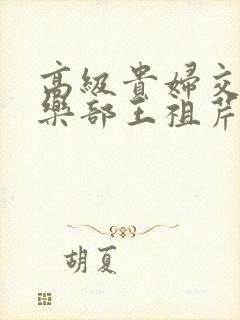 高級貴婦交
樂部王祖芹
胡夏